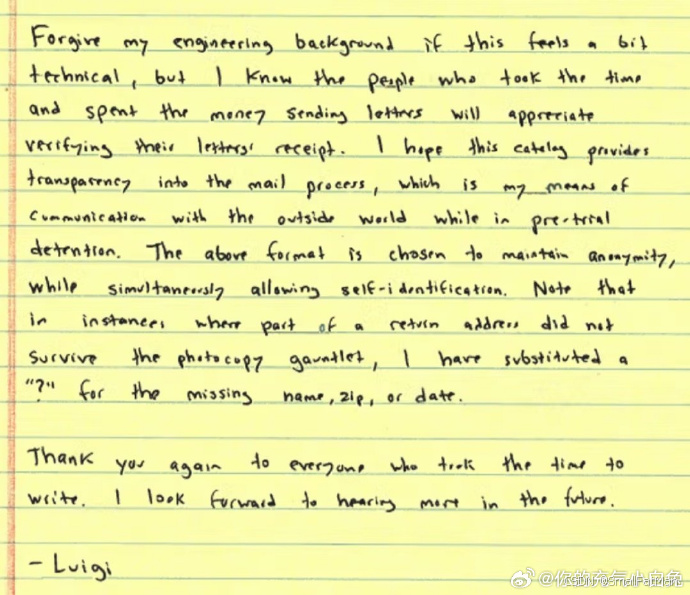 Forgive my engineering background if this feels a bit
technical, but I know the people who took the time
and spent the money sending letters will appreciate
verifying their letters' receipt. I hope this catalog provides
transparency into the mail process, which is my means of
communication with the outside world while in pre-trial
detention. The above format is chosen to maintain anonymity,
while simultaneously allowing self-identification. Note that
in instances where part of a return address did not
survive the photocopy gauntlet, I have substituted a
"?" for the missing name, zip, or date.
Thank you again to everyone who took the time to
write. I look forward to hearing more in the future.
- Luigi